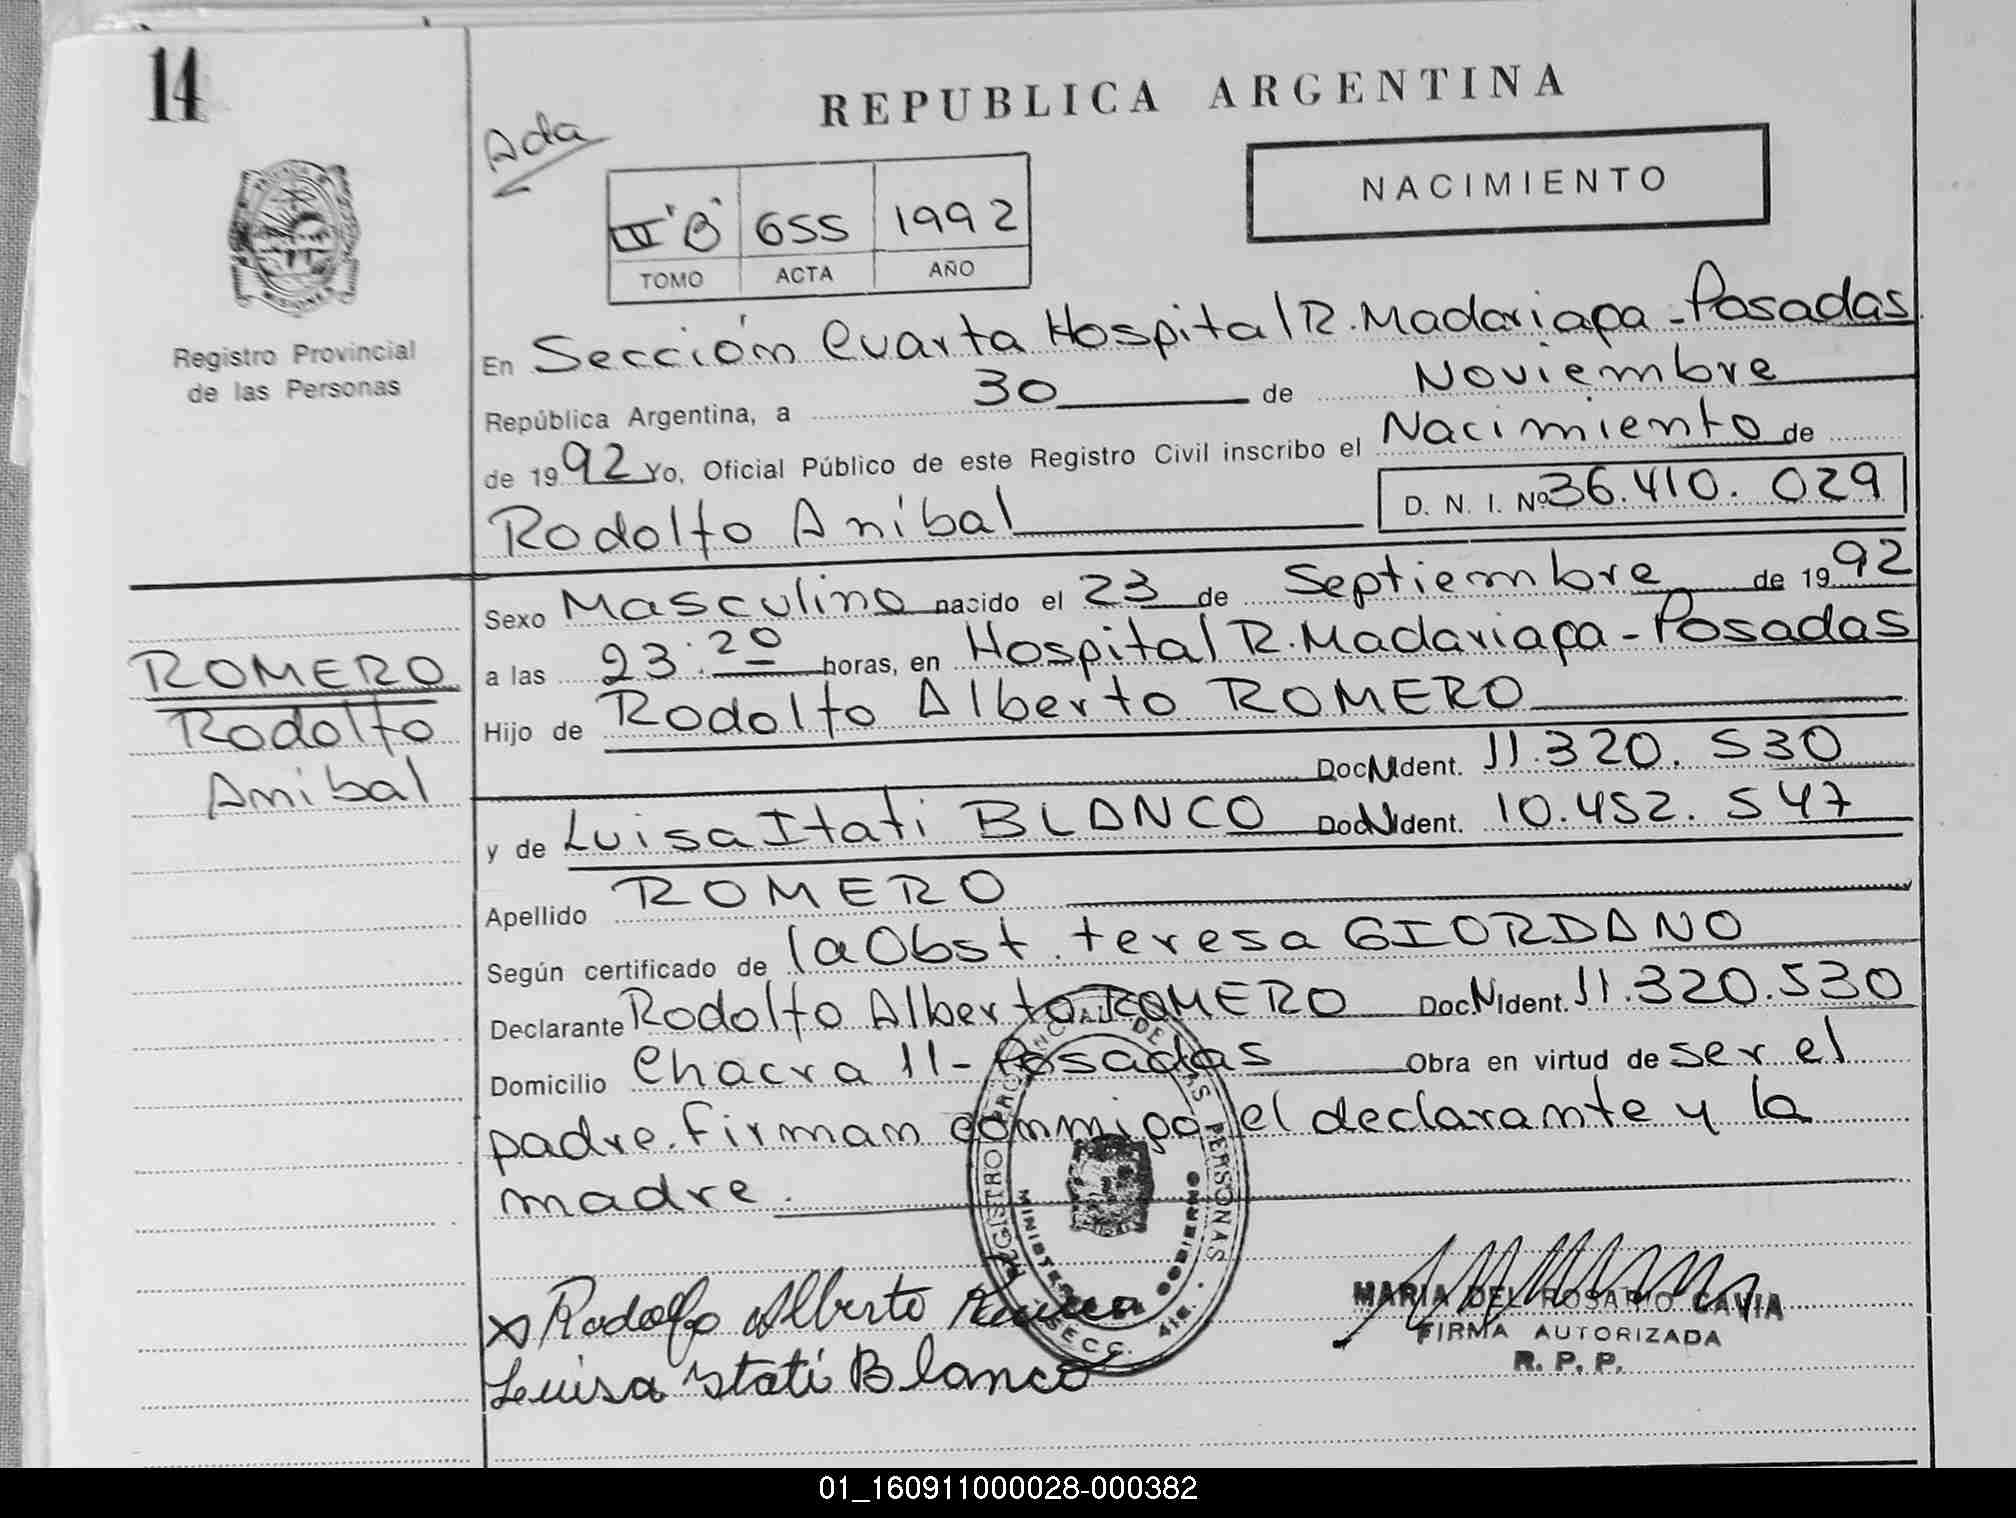 14
REPUBLICA ARGENTINA
Ada
NACIMIENTO
IV "B" 655 1992
TOMO ACTA AÑO
MISIONES
Registro Provincial
de las Personas
En Sección Cuarta Hospital R. Madariaga - Posadas
República Argentina, a 30 de Noviembre
de 1992 Yo, Oficial Público de este Registro Civil inscribo el Nacimiento de
Rodolfo Anibal D. N. I. Nº 36.410.029
Sexo Masculino nacido el 23 de Septiembre de 1992
a las 23:20 horas, en Hospital R. Madariaga - Posadas
ROMERO
Rodolfo
Anibal
Hijo de Rodolfo Alberto ROMERO
Doc.N.Ident. 11.320.530
y de Luisa Itati BLANCO Doc.N.Ident. 10.452.547
Apellido ROMERO
Según certificado de la Obst. teresa GIORDANO
Declarante Rodolfo Alberto ROMERO Doc.N.Ident. 11.320.530
Domicilio Chacra 11 - Posadas Obra en virtud de ser el
padre. Firman conmigo el declarante y la
madre.
REGISTRO PROVINCIAL DE LAS PERSONAS
MINISTERIO GOBIERNO
SECC. 4ta.
Rodolfo Alberto
Luisa Itatí Blanco
MARIA DEL ROSARIO CAVIA
FIRMA AUTORIZADA
R. P. P.
01_160911000028-000382